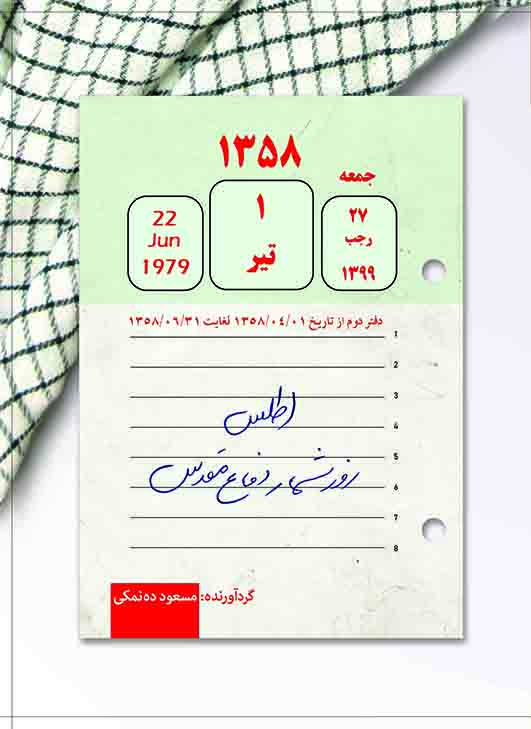 ۱۳۵۸
جمعه
۲۷
رجب
۱۳۹۹
۱
تیر
22
Jun
1979
دفتر دوم از تاریخ ۱۳۵۸/۰۴/۰۱ لغایت ۱۳۵۸/۰۶/۳۱
1
2
3
اطلس
4
5
روزشمار دفاع مقدس
6
7
8
گردآورنده: مسعود ده‌نمکی